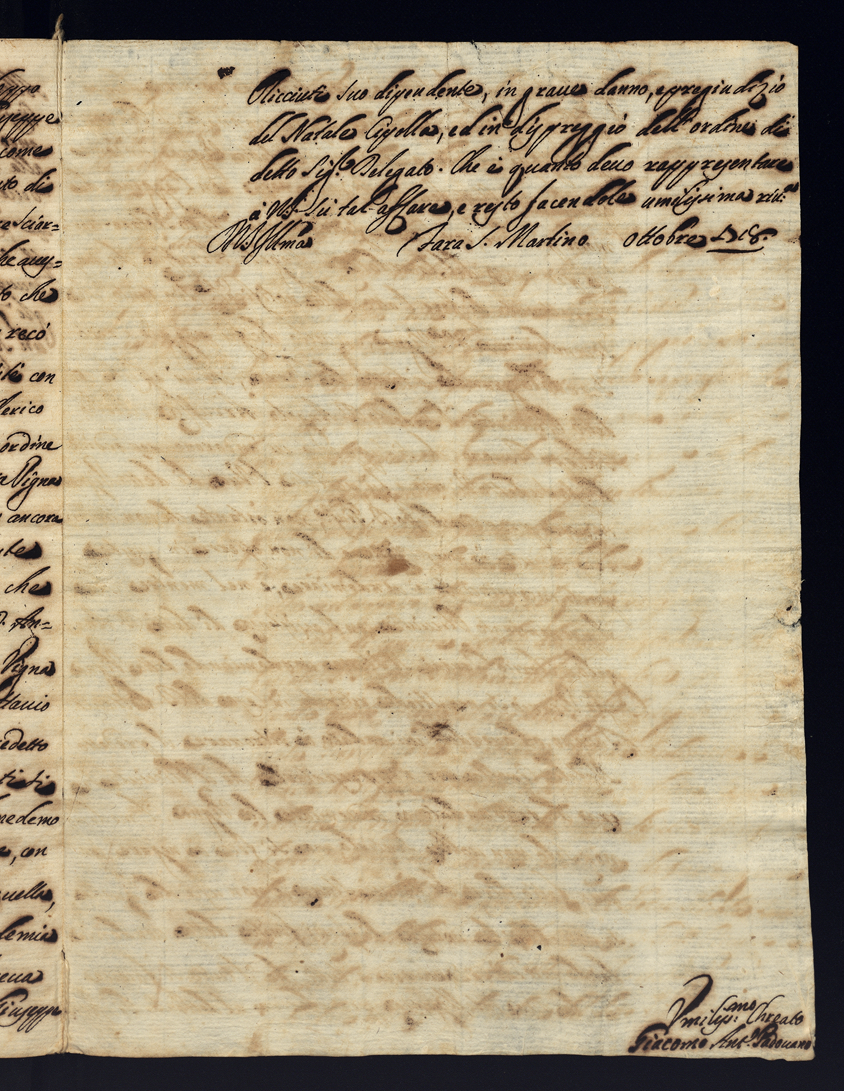 ppo
seppe
come
to di
e Sciar=
he auy=
to che
recó
con
lerico
ordine
a Vigna
ancora
te
che
An=
Vigna
ttauio
edetto
ti si
medemo
, con
uella,
lemie
eua
Giuseppe
Ricciuti suo dipendente, in graue danno, e pregiudizio
del Natale Cipolla, ed in dispreggio dell'ordine di
detto Sig.r Delegato. Che è quanto deuo rappresentare
à V.S. sù tal affare, e resto facendole umilissima riu.
V.S. Ill.ma Fara S. Martino Ottobre
Vmiliss.mo Chreato
Giacomo Ant.o Padouano